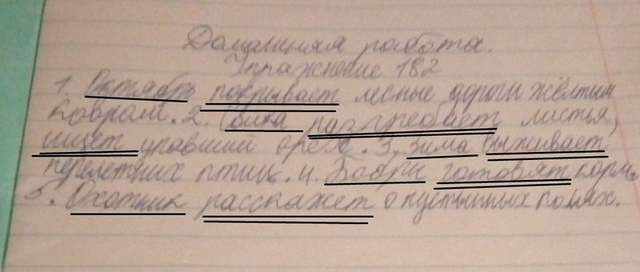 Домашняя работа.
Упражнение 182
1. Октябрь покрывает лесные дороги жёлтым
ковром. 2. Свика разгребает листья,
ищет упавший орех. 3. Зима выживает
перелётних птиц. 4. Бобры готовят корм.
5. Охотник расскажет о пустынных полях.